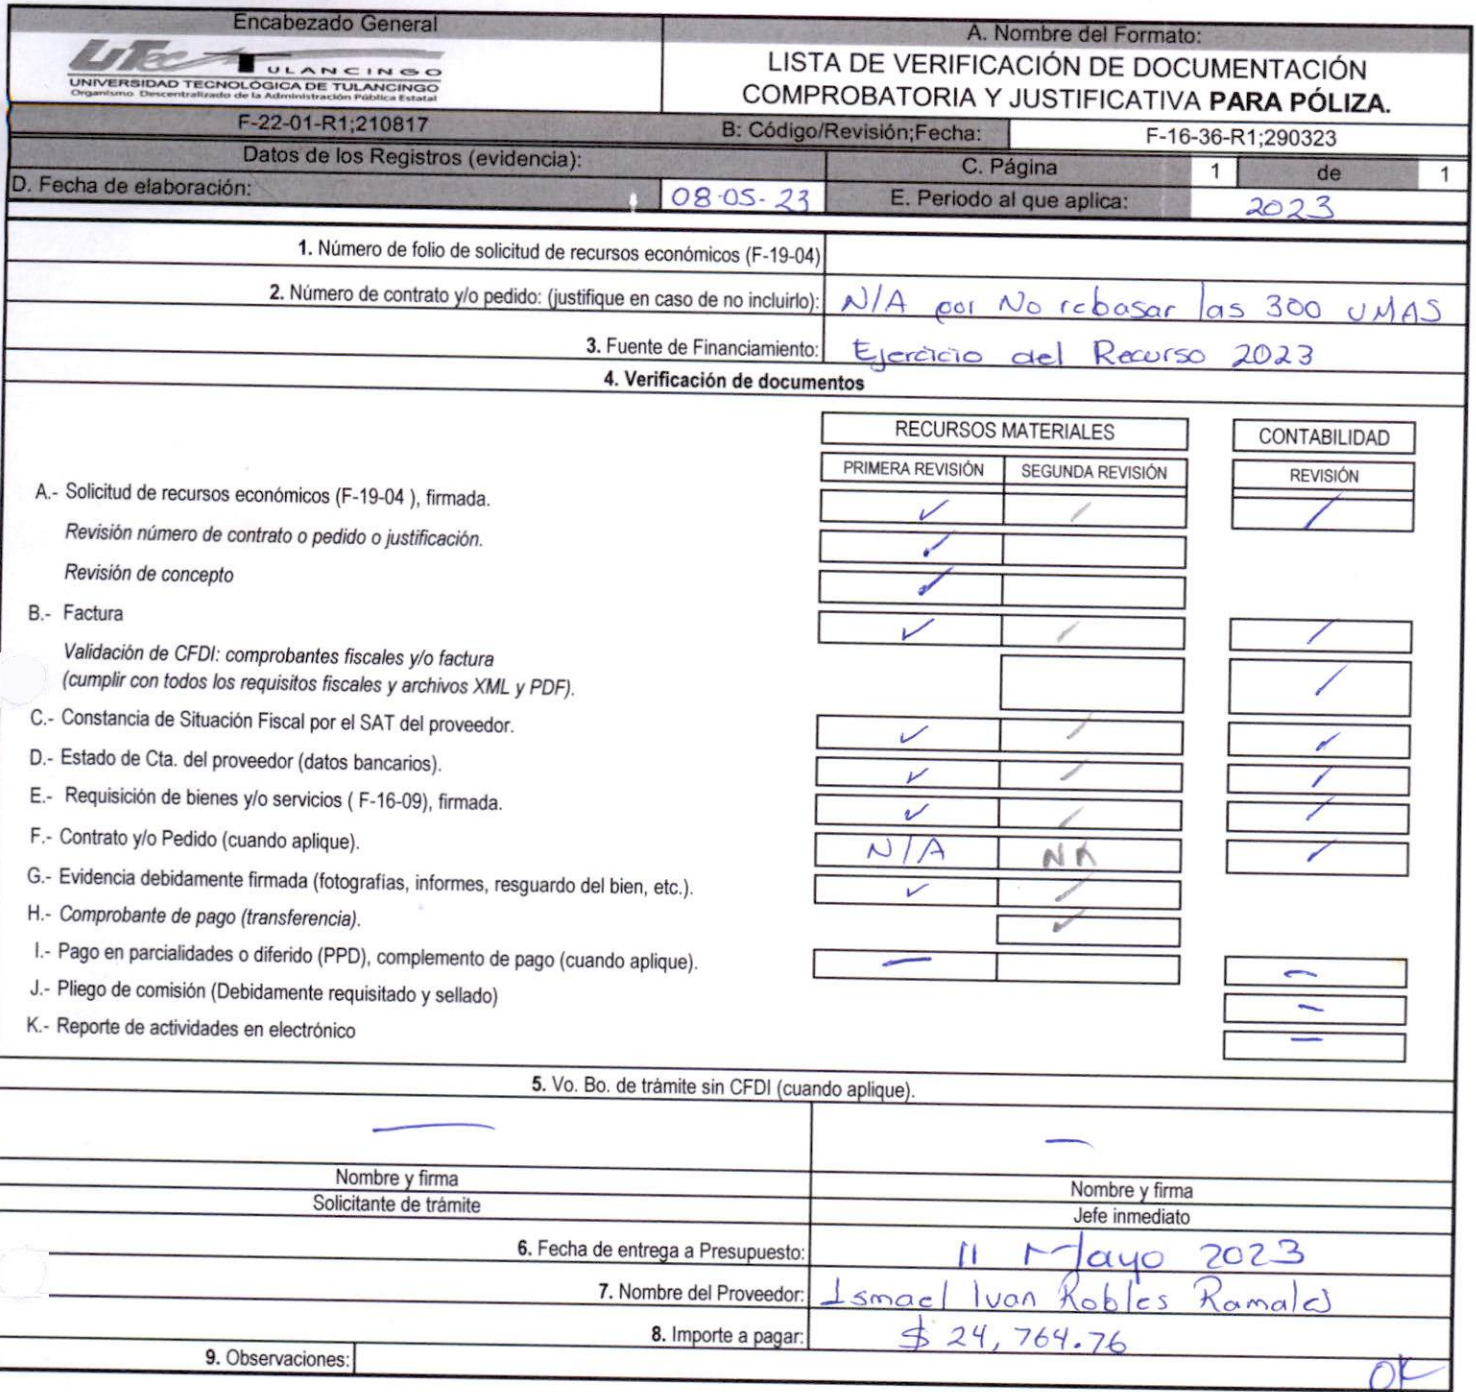 Encabezado General
A. Nombre del Formato:
UTec TULANCINGO
UNIVERSIDAD TECNOLÓGICA DE TULANCINGO
Organismo Descentralizado de la Administración Pública Estatal
LISTA DE VERIFICACIÓN DE DOCUMENTACIÓN
COMPROBATORIA Y JUSTIFICATIVA PARA PÓLIZA.
F-22-01-R1;210817 B: Código/Revisión;Fecha: F-16-36-R1;290323
Datos de los Registros (evidencia): C. Página 1 de 1
D. Fecha de elaboración: 08-05-23 E. Periodo al que aplica: 2023
1. Número de folio de solicitud de recursos económicos (F-19-04)
2. Número de contrato y/o pedido: (justifique en caso de no incluirlo): N/A por No rebasar las 300 UMAS
3. Fuente de Financiamiento: Ejercicio del Recurso 2023
4. Verificación de documentos
RECURSOS MATERIALES CONTABILIDAD
PRIMERA REVISIÓN SEGUNDA REVISIÓN REVISIÓN
A.- Solicitud de recursos económicos (F-19-04 ), firmada. ✓ / /
Revisión número de contrato o pedido o justificación. ✓
Revisión de concepto ✓
B.- Factura ✓ / /
Validación de CFDI: comprobantes fiscales y/o factura
(cumplir con todos los requisitos fiscales y archivos XML y PDF). /
C.- Constancia de Situación Fiscal por el SAT del proveedor. ✓ / ✓
D.- Estado de Cta. del proveedor (datos bancarios). ✓ / /
E.- Requisición de bienes y/o servicios ( F-16-09), firmada. ✓ / /
F.- Contrato y/o Pedido (cuando aplique). N/A NA ✓
G.- Evidencia debidamente firmada (fotografías, informes, resguardo del bien, etc.). ✓ ✓
H.- Comprobante de pago (transferencia). ✓
I.- Pago en parcialidades o diferido (PPD), complemento de pago (cuando aplique). — —
J.- Pliego de comisión (Debidamente requisitado y sellado) —
K.- Reporte de actividades en electrónico —
5. Vo. Bo. de trámite sin CFDI (cuando aplique).
— —
Nombre y firma Nombre y firma
Solicitante de trámite Jefe inmediato
6. Fecha de entrega a Presupuesto: 11 Mayo 2023
7. Nombre del Proveedor: Ismael Ivan Robles Ramales
8. Importe a pagar: $ 24,764.76
9. Observaciones: OK